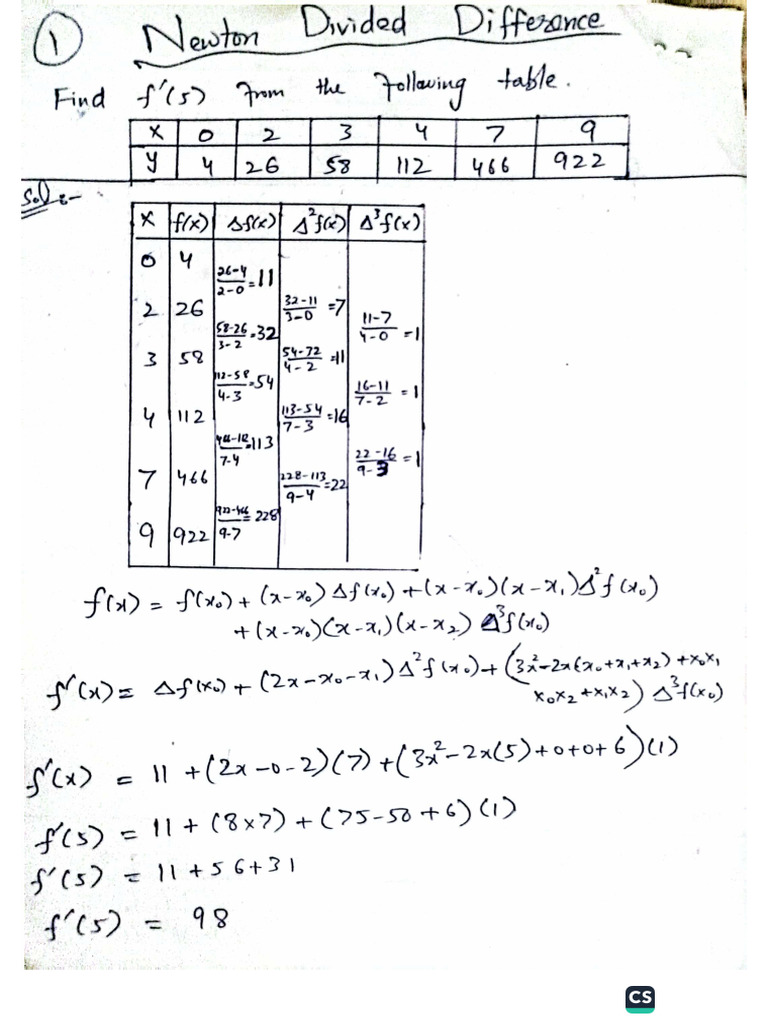 ① Newton Divided Difference
Find f'(5) from the following table.
x 0 2 3 4 7 9
y 4 26 58 112 466 922
Sol:-
x f(x) Δf(x) Δ²f(x) Δ³f(x)
0 4
(26-4)/(2-0) = 11
2 26 (32-11)/(3-0) = 7
(58-26)/(3-2) = 32 (11-7)/(4-0) = 1
3 58 (54-72)/(4-2) = 11
(112-58)/(4-3) = 54 (16-11)/(7-2) = 1
4 112 (113-54)/(7-3) = 16
/(7-4) = 113 (22-16)/(9-3) = 1
7 466 (228-113)/(9-4) = 22
(922-466)/(9-7) = 228
9 922
f(x) = f(x₀) + (x-x₀) Δf(x₀) + (x-x₀)(x-x₁) Δ²f(x₀)
+ (x-x₀)(x-x₁)(x-x₂) Δ³f(x₀)
f'(x) = Δf(x₀) + (2x-x₀-x₁) Δ²f(x₀) + (3x²-2x(x₀+x₁+x₂) + x₀x₁
x₀x₂ + x₁x₂) Δ³f(x₀)
f'(x) = 11 + (2x-0-2)(7) + (3x²-2x(5)+0+0+6)(1)
f'(5) = 11 + (8×7) + (75-50+6)(1)
f'(5) = 11 + 56 + 31
f'(5) = 98
CS